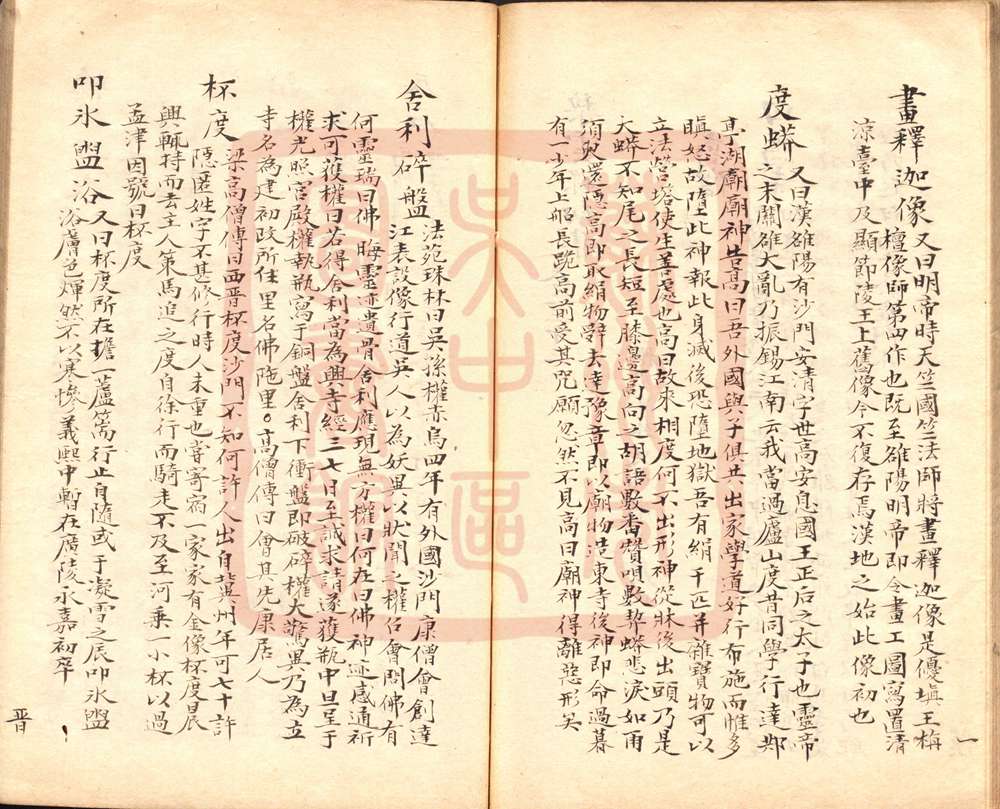 畫釋迦像 又曰明帝時天竺國竺法師將畫釋迦像是優塡王栴
檀像師第四作也既至雒陽明帝即令畫工圖寫置清
涼臺中及顯節陵上舊像今不復存焉漢地之始此像初也
度蟒 又曰漢雒陽有沙門安清字世高安息國王正后之太子也靈帝
之末關雒大亂乃振錫江南云我當過廬山度昔同學行達䢼
亭湖廟廟神告高曰吾外國與子俱共出家學道好行布施而惟多
瞋怒故墮此神報此身滅後恐墮地獄吾有絹千匹并雜寶物可以
立法營塔使生善處也高曰故來相度何不出形神從牀後出頭乃是
大蟒不知尾之長短至膝邊高向之胡語數番讚唄數契蟒悲淚如雨
須臾還隱高即取絹物辭去達豫章即以廟物造東寺後神即命過暮
有一少年上船長跪高前受其咒願忽然不見高曰廟神得離惡形矣
舍利碎盤 法苑珠林曰吳孫權赤烏四年有外國沙門康僧會創達
江表設像行道吳人以為妖異以狀聞之權召會問佛有
何靈瑞曰佛晦靈迹遺骨舍利應現無方權曰何在曰佛神迹感通祈
求可獲權曰若得舍利當為興寺經三七日至誠求請遂獲瓶中旦呈于
權光照宮殿權執瓶寫于銅盤舍利下衝盤即破碎權大驚異乃為立
寺名為建初政所住里名佛陁里。高僧傳曰會其先康居人
杯度 梁高僧傳曰西晋杯度沙門不知何許人出自冀州年可七十許
隱匿姓字不甚修行時人未重也嘗寄宿一家家有金像杯度晨
興輒持而去主人策馬追之度自徐行而騎走不及至河乘一小杯以過
孟津因號曰杯度
叩氷盥浴 又曰杯度所在擔一蘆䈰行止自隨或于凝雪之辰叩氷盥
浴膚色煇然不以寒慘義熙中暫在廣陵永嘉初卒
一
晋